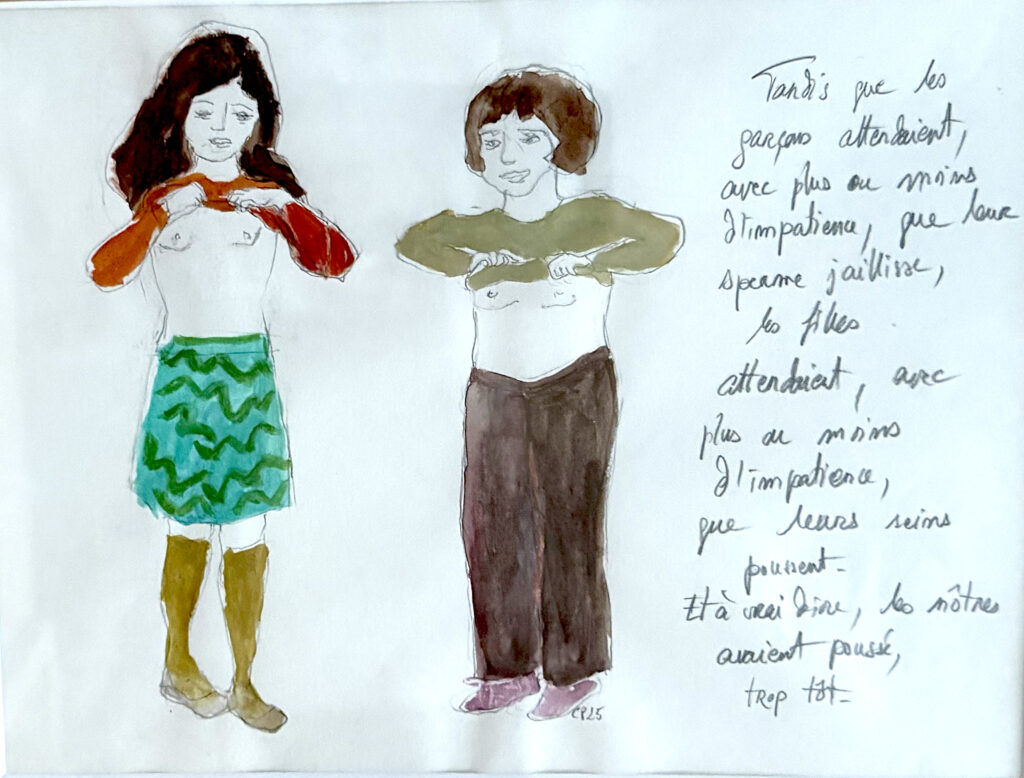 Tandis que les
garçons attendaient,
avec plus ou moins
d'impatience, que leur
sperme jaillisse,
les filles
attendaient, avec
plus ou moins
d'impatience,
que leurs seins
poussent.
Et à vrai dire, les nôtres
avaient poussé,
trop tôt.
CP25